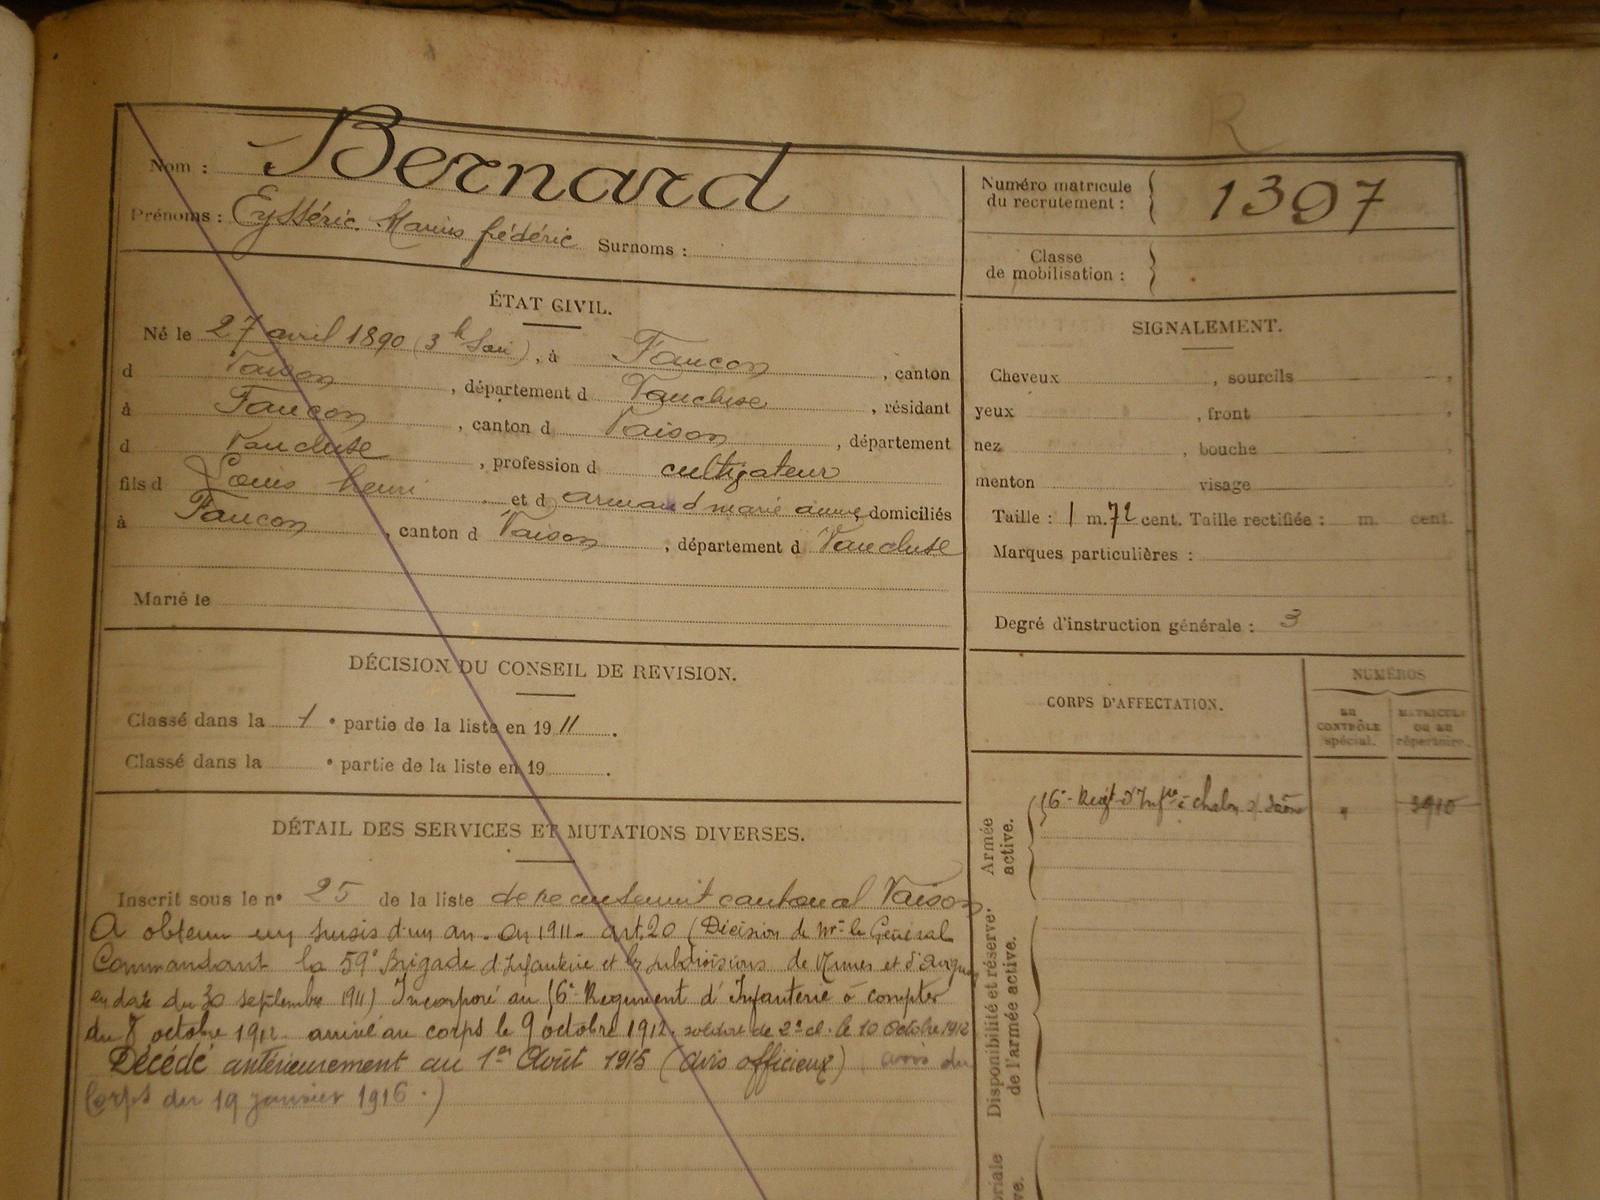 Nom : Bernard
Prénoms : Eysséric Marius frédéric Surnoms :
Numéro matricule
du recrutement : 1397
Classe
de mobilisation :
ÉTAT CIVIL.
Né le 27 avril 1890 (3 h Soir), à Faucon , canton
d Vaison , département d Vaucluse , résidant
à Faucon , canton d Vaison , département
d Vaucluse , profession d cultivateur
fils d Louis henri et d armand marie anne, domiciliés
à Faucon , canton d Vaison , département d Vaucluse
Marié le
SIGNALEMENT.
Cheveux , sourcils ,
yeux , front ,
nez , bouche
menton visage
Taille : 1 m. 72 cent. Taille rectifiée : m. cent.
Marques particulières :
Degré d'instruction générale : 3
DÉCISION DU CONSEIL DE REVISION.
Classé dans la 1 e partie de la liste en 1911 .
Classé dans la e partie de la liste en 19 .
CORPS D'AFFECTATION.
NUMÉROS
AU CONTRÔLE spécial.
MATRICULE OU AU répertoire.
DÉTAIL DES SERVICES ET MUTATIONS DIVERSES.
Inscrit sous le n° 25 de la liste de recensement cantonal Vaison
A obtenu un sursis d'un an en 1911 art. 20 (Décision de Mr le Général
Commandant la 59e Brigade d'Infanterie et les subdivisions de Nimes et d'Avignon
en date du 30 septembre 1911) Incorporé au 56e Régiment d'Infanterie à compter
du 8 octobre 1912 arrivé au corps le 9 octobre 1912. soldat de 2e cl. le 10 octobre 1912
Décédé antérieurement au 1er Août 1915 (avis officieux) avis du
Corps du 19 janvier 1916.)
Armée
active.
56e Regt d'Infie à Chalon s/ Saône " 3910
Disponibilité et réserve
de l'armée active.
R